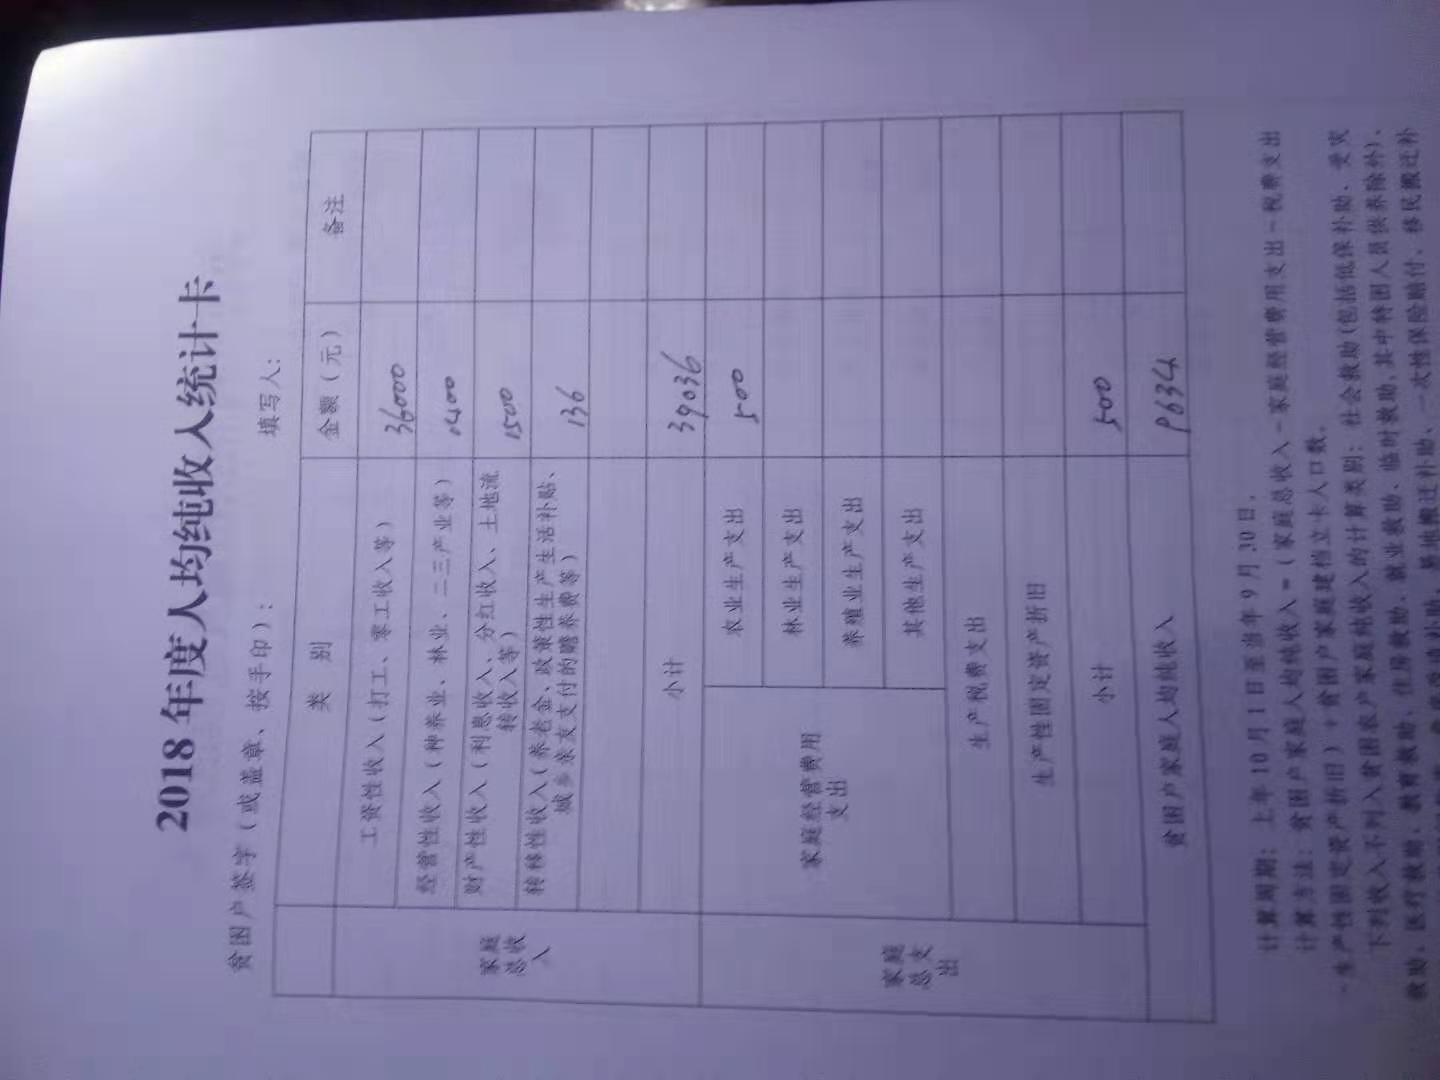 2018 年度人均纯收入统计卡
贫困户签字（或盖章、按手印）： 填写人：
类 别 金额（元） 备注
家庭总收入
工资性收入（打工、零工收入等） 36000
经营性收入（种养业、林业、二三产业等）
财产性收入（利息收入、分红收入、土地流
转收入等） 1500
转移性收入（养老金、政策性生产生活补贴、
城乡亲友支付的赡养费等） 136
小计 39036
家庭总支出
家庭经营费用支出
农业生产支出 500
林业生产支出
养殖业生产支出
其他生产支出
生产税费支出
生产性固定资产折旧
小计 500
贫困户家庭人均纯收入 9634
计算周期：上年 10 月 1 日至当年 9 月 30 日。
计算方法：贫困户家庭人均纯收入=（家庭总收入－家庭经营费用支出－税费支出
－生产性固定资产折旧）÷贫困户家庭建档立卡人口数。
下列收入不列入贫困农户家庭纯收入的计算类别：社会救助（包括低保补助、受灾
救助、医疗救助、教育救助、住房救助、就业救助、临时救助，其中特困人员供养除外）、
易地搬迁补助、一次性保险赔付、移民搬迁补